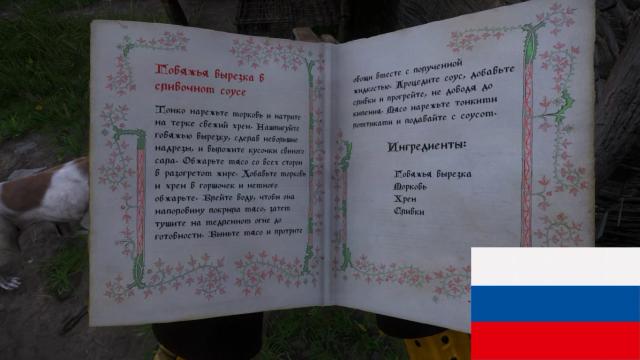 Говяжья вырезка в
сливочном соусе
Тонко нарежьте морковь и натрите
на терке свежий хрен. Нашпигуйте
говяжью вырезку, сделав небольшие
надрезы, и выложите кусочки свиного
сала. Обжарьте мясо со всех сторон
в разогретом жире. Добавьте морковь
и хрен в горшочек и немного
обжарьте. Влейте воду, чтобы она
наполовину покрыла мясо, затем
тушите на медленном огне до
готовности. Выньте мясо и протрите
овощи вместе с полученной
жидкостью. Процедите соус, добавьте
сливки и прогрейте, не доводя до
кипения. Мясо нарежьте тонкими
ломтиками и подавайте с соусом.
Ингредиенты:
Говяжья вырезка
Морковь
Хрен
Сливки